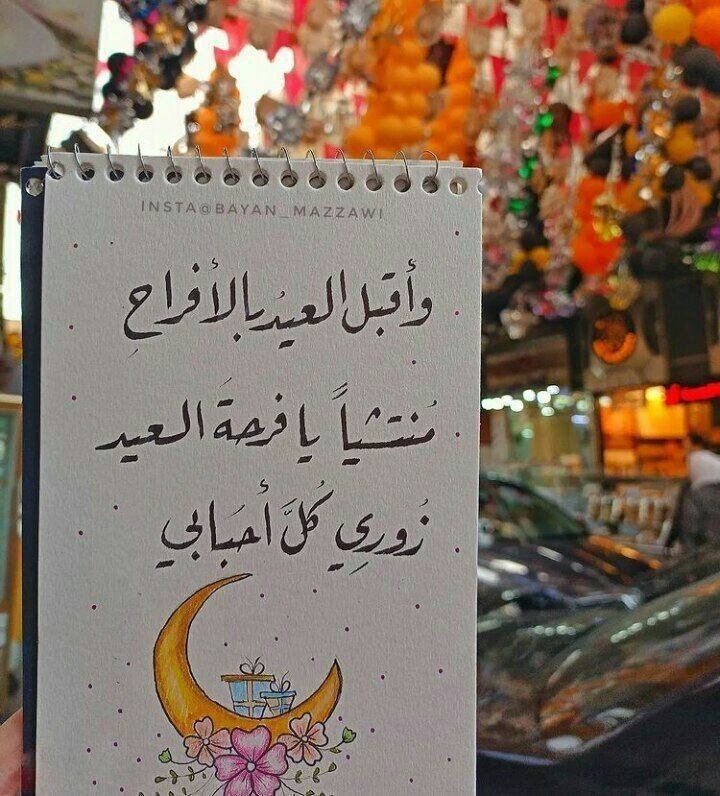 INSTA@BAYAN_MAZZAWI
وأقبل العيدُ بالأفراحِ
مُنتشياً يا فرحةَ العيد
زُورِي كُلَّ أحبَابي